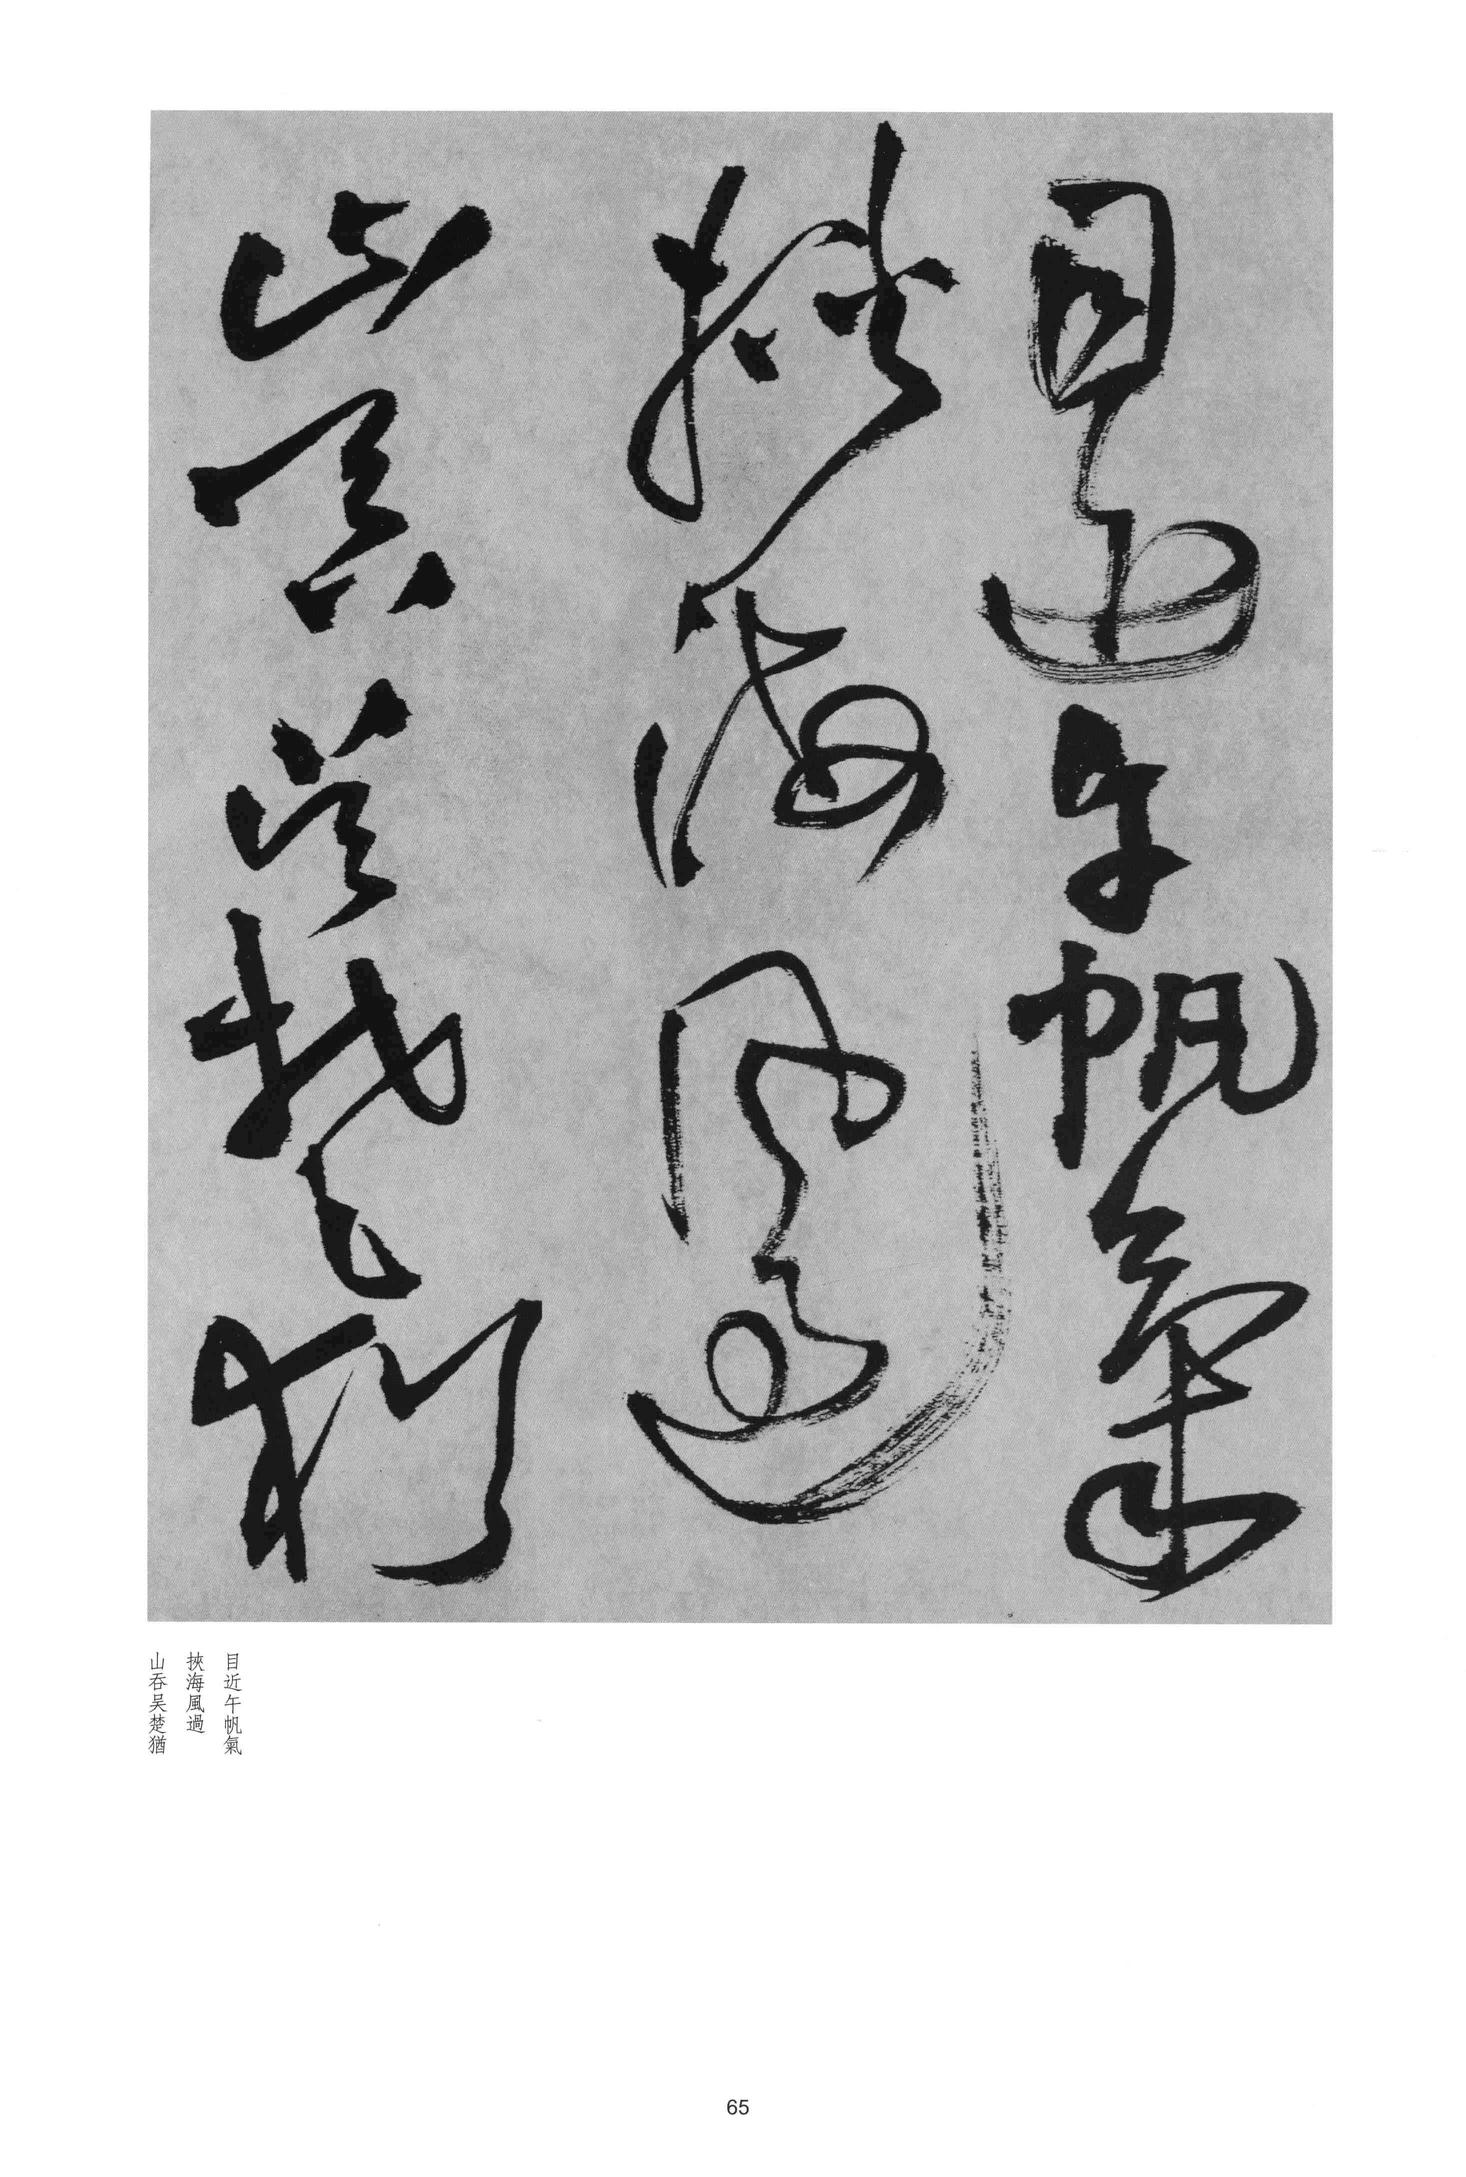 目近午帆氣
挾海風過
山吞吴楚猶
目近午帆氣
挾海風過
山吞吴楚猶
65